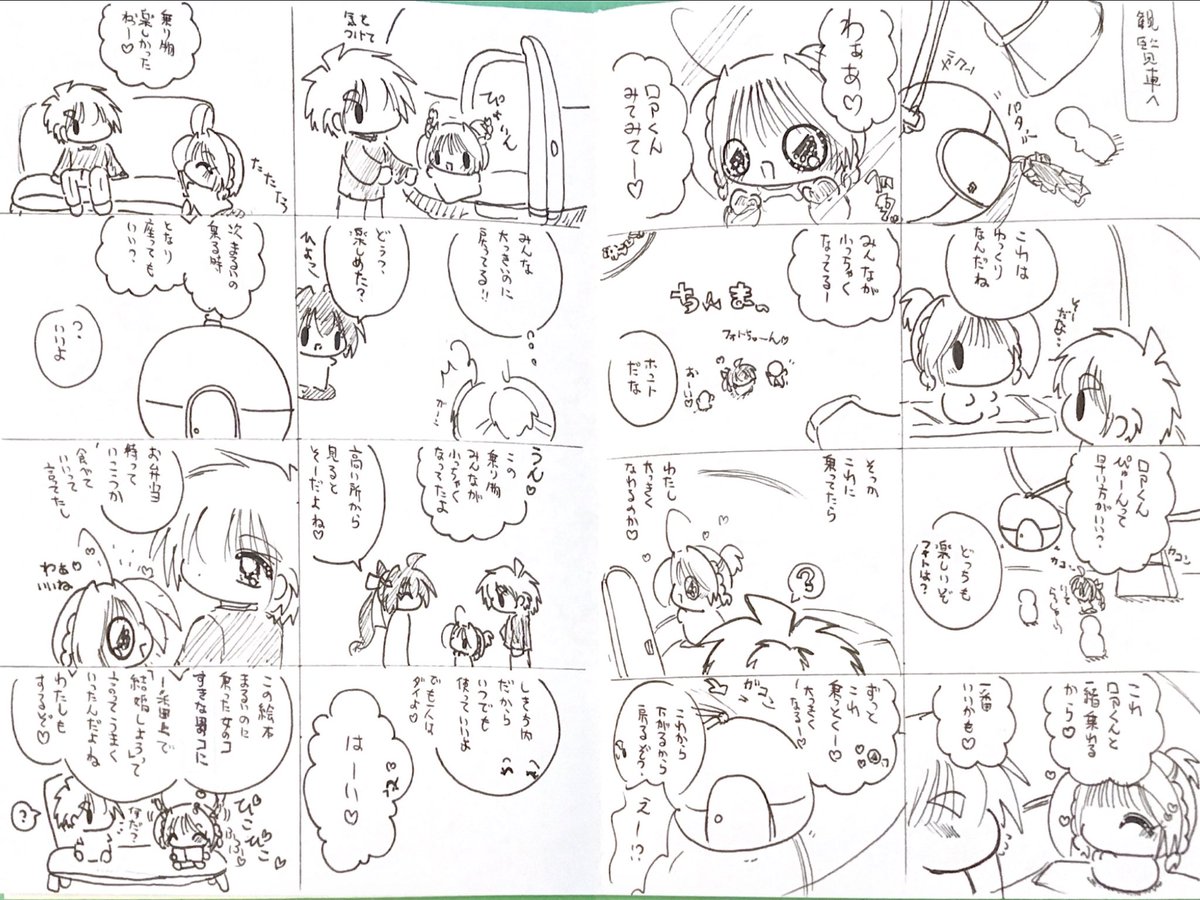 観覧車へ
パタ
これは
ゆっくり
なんだね
そーだな
ロアくん
ぴゅーんって
早い方がいい?
どっちも
楽しいぞ
フォトは?
ガコン
これ
ロアくんと
一緒乗れる
から♡
一番
いいかも♡
わぁぁ♡
ロアくん
みてみてー♡
みんなが
小っちゃく
なってるー
ちんまっ
フォトちゅーん♡
おーい♡
ホント
だな
そっか
これに
乗ってたら
わたし
大っきく
なれるのか♡
?
ずっと
これ
乗っとくー♡
大っきく
なるー♡
ガコン
これから
下がるから
戻るぞう?
えー!?
気を
つけて
ぴょいん
みんな
大っきいのに
戻ってる!!
どう?
楽しめた?
ひょこっ
うん♡
この
乗り物
みんなが
小っちゃく
なってたよ
高い所から
見ると
そーだよね♡
しき地内
だから
いつでも
使っていいよ
でも一人は
ダメよ♡
はーい♡
乗り物
楽しかった
ねー♡
たたたっ
次まるいの
乗る時
となり
座っても
いい?
?
いいよ
お弁当
持って
いこうか
食べて
いいって
言ってたし
わぁ♡
いいね
この絵本
まるいのに
乗った女のコ
すきな男のコに
一番上で
「結婚しよう」って
言ってうまく
いったんだよね
わたしも
するぞ♡
ぴこ
ぴこ
ふふ
?